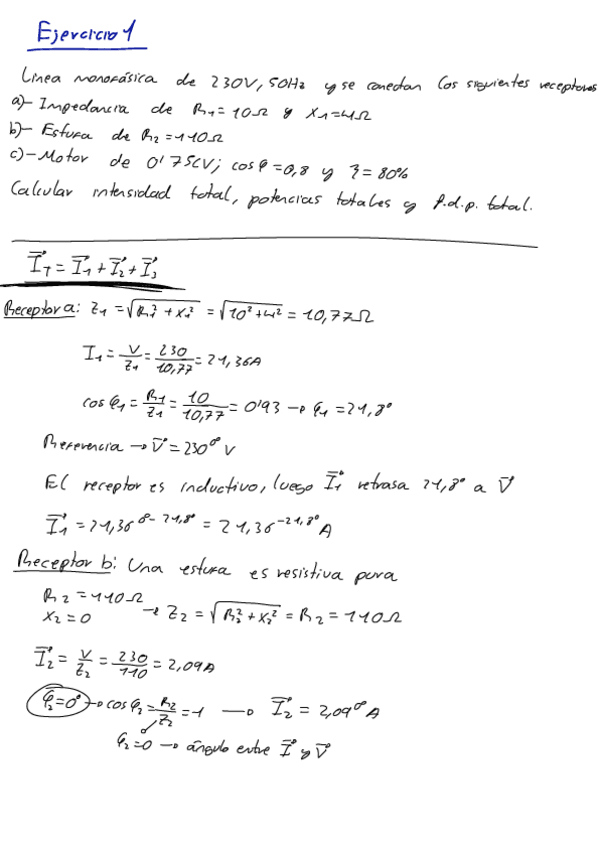 Ejercicio 1
Linea monofásica de 230V, 50Hz y se conectan los siguientes receptores
a)- Impedancia de R₁=10Ω y X₁=4Ω
b)- Estufa de R₂=110Ω
c)- Motor de 0'75CV; cos φ=0,8 y η=80%
Calcular intensidad total, potencias totales y f.d.p. total.
I⃗T = I⃗₁ + I⃗₂ + I⃗₃
Receptor a: Z₁ = √(R₁² + X₁²) = √(10²+4²) = 10,77Ω
I₁ = V/Z₁ = 230/10,77 = 21,36A
cos φ₁ = R₁/Z₁ = 10/10,77 = 0'93 → φ₁ = 21,8°
Referencia → V⃗ = 230^0° V
El receptor es inductivo, luego I⃗₁ retrasa 21,8° a V⃗
I⃗₁ = 21,36^0-21,8° = 21,36^-21,8° A
Receptor b: Una estufa es resistiva pura
R₂ = 110Ω
X₂ = 0 → Z₂ = √(R₂² + X₂²) = R₂ = 110Ω
I⃗₂ = V/Z₂ = 230/110 = 2,09A
φ₂=0° → cos φ₂ = R₂/Z₂ = 1 → I⃗₂ = 2,09^0° A
φ₂=0 → ángulo entre I⃗ y V⃗